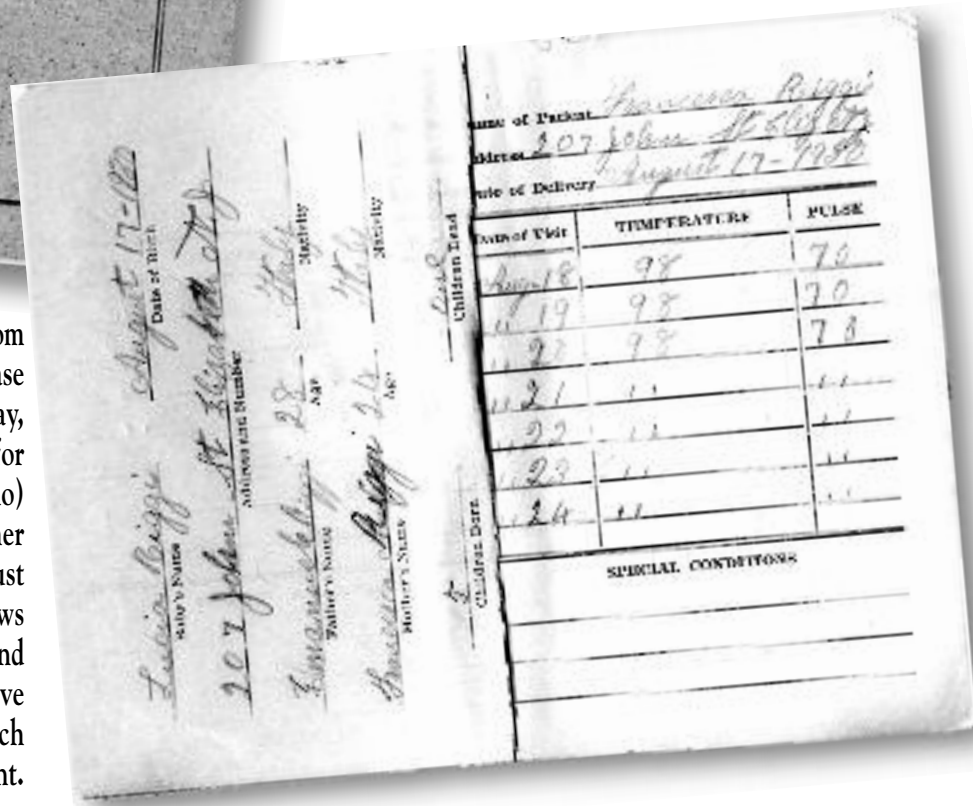 om
ase
ay,
or
o)
her
ust
ws
nd
ive
ch
nt.
August 17-
Date of Birth
Baby's Name
207 John St Elizabeth
Address and Number
28 Italy
Father's Name Age Nativity
Francesca Riggi 24 Italy
Mother's Name Age Nativity
Children Born Children Dead
Name of Patient Francesca Riggi
Address 207 John St
Date of Delivery August 17-
Date of Visit TEMPERATURE PULSE
Aug 18 98 70
" 19 98 70
98 70
" 21 " " " "
" 22 " " " "
" 23 " " " "
" 24 " " " "
SPECIAL CONDITIONS